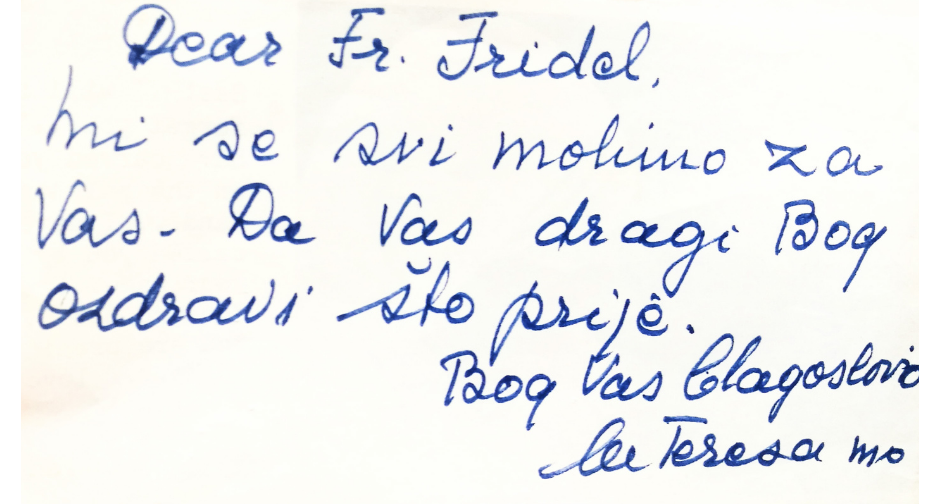 Dear Fr. Fridel,
Mi se svi molimo za
Vas. Da Vas dragi Bog
ozdravi što prije.
Bog Vas blagoslovio
lle Teresa mc